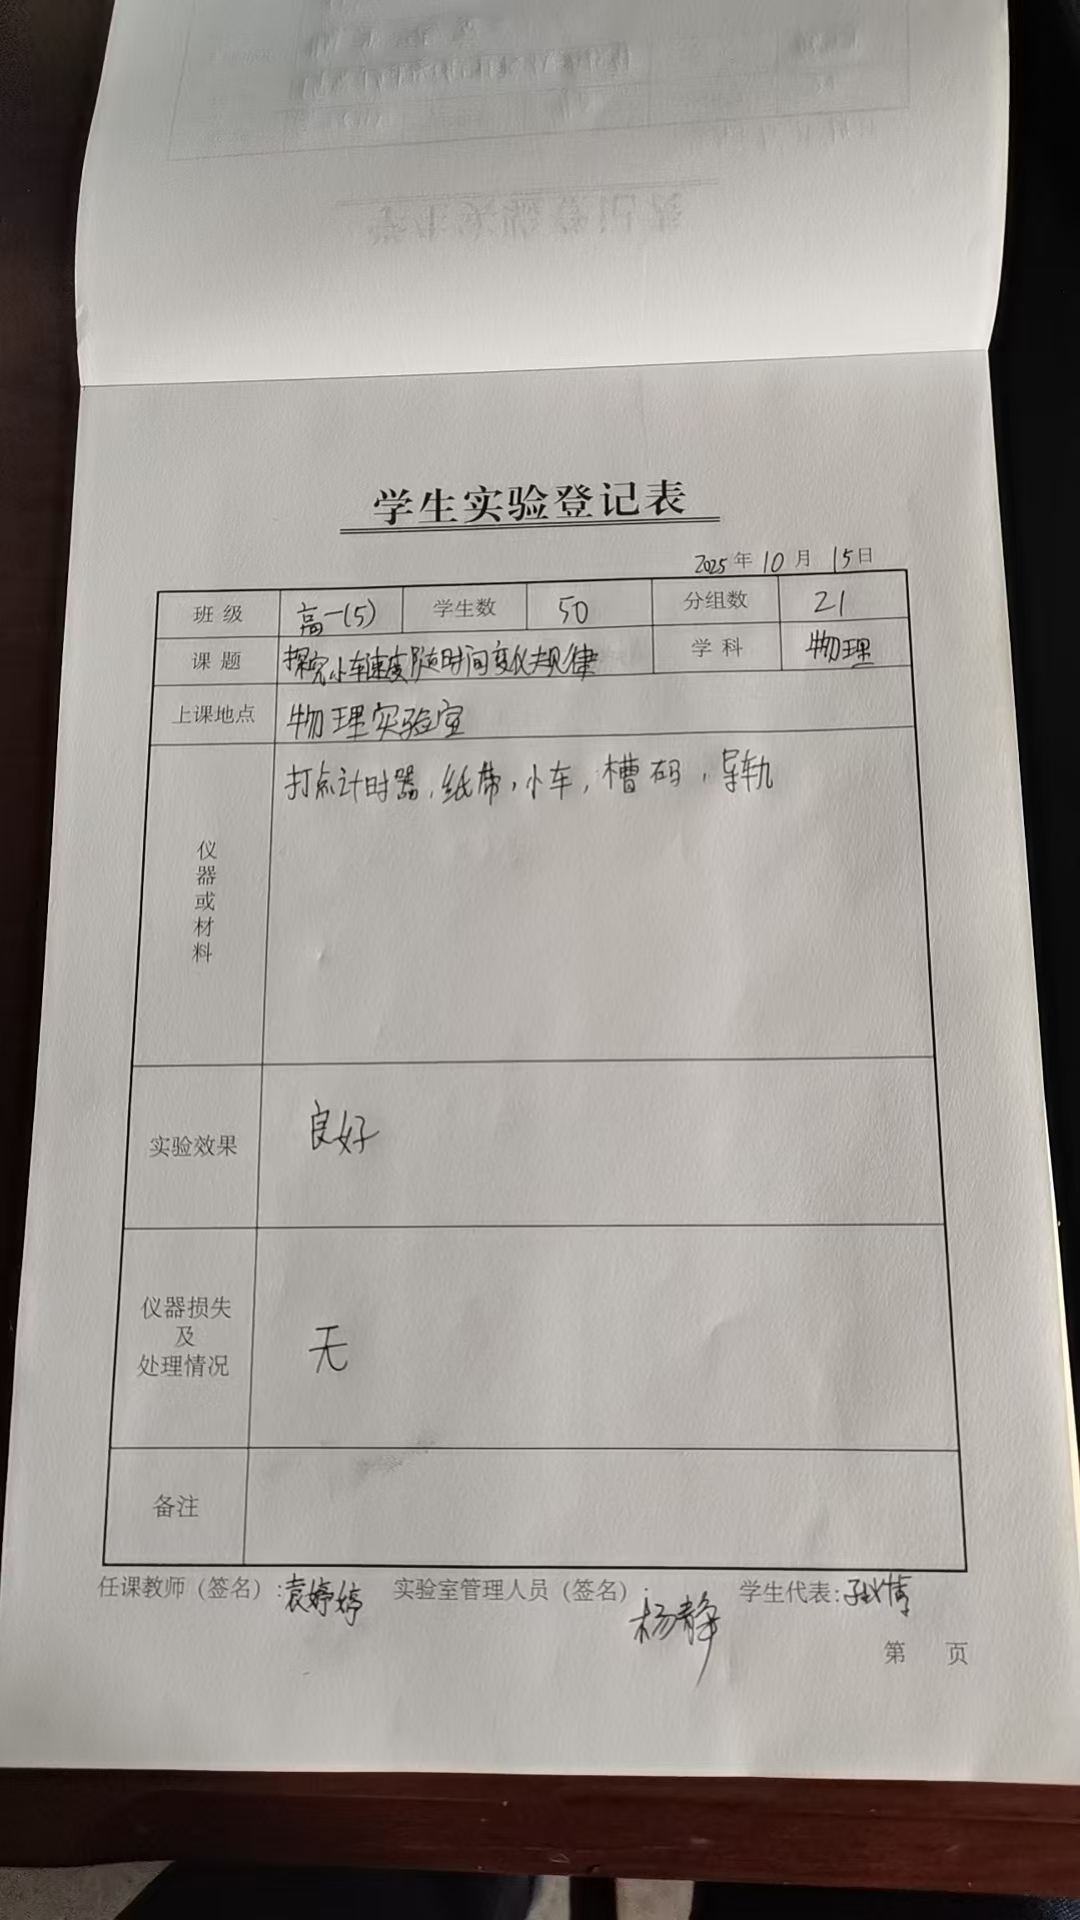 学生实验登记表
2025年10月15日
班级 高一(5) 学生数 50 分组数 21
课题 探究小车速度随时间变化规律 学科 物理
上课地点 物理实验室
仪器或材料 打点计时器，纸带，小车，槽码，导轨
实验效果 良好
仪器损失及处理情况 无
备注
任课教师（签名）:袁婷婷 实验室管理人员（签名）: 杨静 学生代表:
第 页